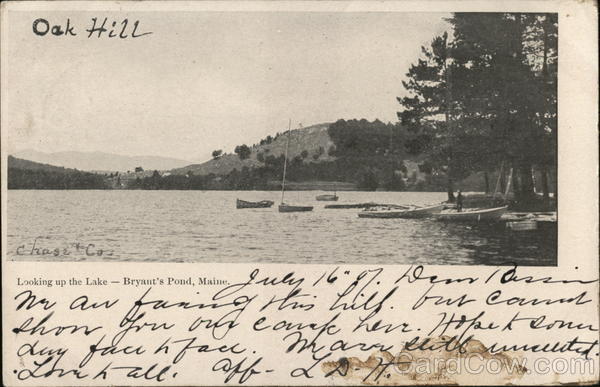 Oak Hill
Chase & Co.
Looking up the Lake — Bryant's Pond, Maine.
July 16" 07. Dear
We are facing this hill. but cannot
show you our camp here. Hope to some
day face to face. We are still unsettled.
Love to all. Aff- L. D. H.
CardCow.com